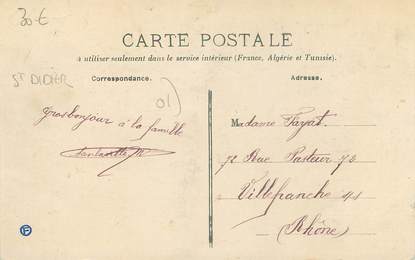 30 €
CARTE POSTALE
à utiliser seulement dans le service intérieur (France, Algérie et Tunisie).
Correspondance.
Adresse.
ST DIDIER
01)
Gros bonjour à la famille
Madame Fayat.
72 Rue Pasteur 72
Villefranche s/s
(Rhône)